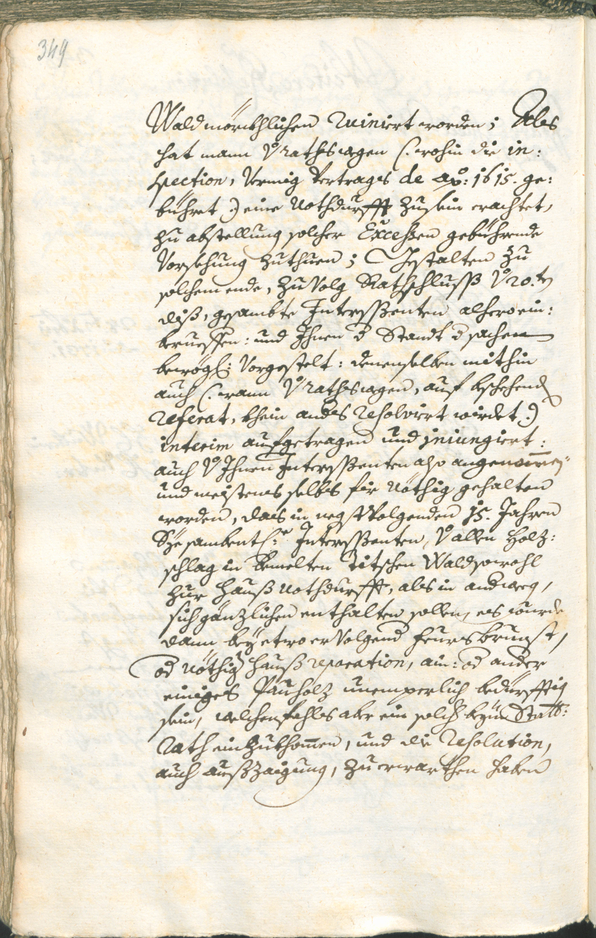 349
Waldmörchlichen Ruiniert worden; Als
hat mann V: rathswegen (: wohin die in:
spection, Vermög Vertrags de aõ: 1615. ge:
bühret :) eine Nothdurfft zu sein erachtet,
zu abstellung solcher Excessen gebührende
Vorsehung zuthuen; Gestalten zu
solchem ende, zu Volg Rathschluß V: 20.ten
diß, gesambte Interessenten alhero ein:
beruessen: und Ihnen d Standt d sachen
beweegl: Vorgestelt: denenselben mithin
auch (: wann V: rathswegen, auf beschehend
referat, khein anders resolviert wirdet :)
interim aufgetragen und iniungiert:
auch V: Ihnen Interessenten also angenommen
und meistens selbst für nöthig gehalten
worden, daß in negst Volgenden 15. Jahren
Sye sambentl: Interessenten, V: allen Holz:
schlag in bemelten Titschen Wald sowohl
zur Hauß Nothdurfft, als in anderweg,
sich gänzlichen enthalten sollen, es wurde
dann bey etwo er Volgend feuersbrunst,
od nöthig Haußreparation, ain: od ander
einiges Pauholz unemperlich bedürfftig
sein, welchenfahls aber ein solch beym Statt:
Rath einzukhomen, und die resolution,
auch außzaigung, zuerwarthen haben